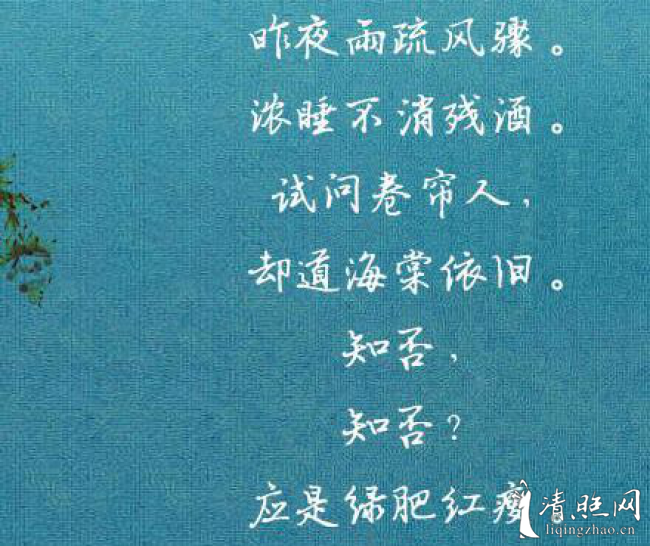 昨夜雨疏风骤。
浓睡不消残酒。
试问卷帘人，
却道海棠依旧。
知否，
知否？
应是绿肥红瘦
清旺网
liqingzhao.cn